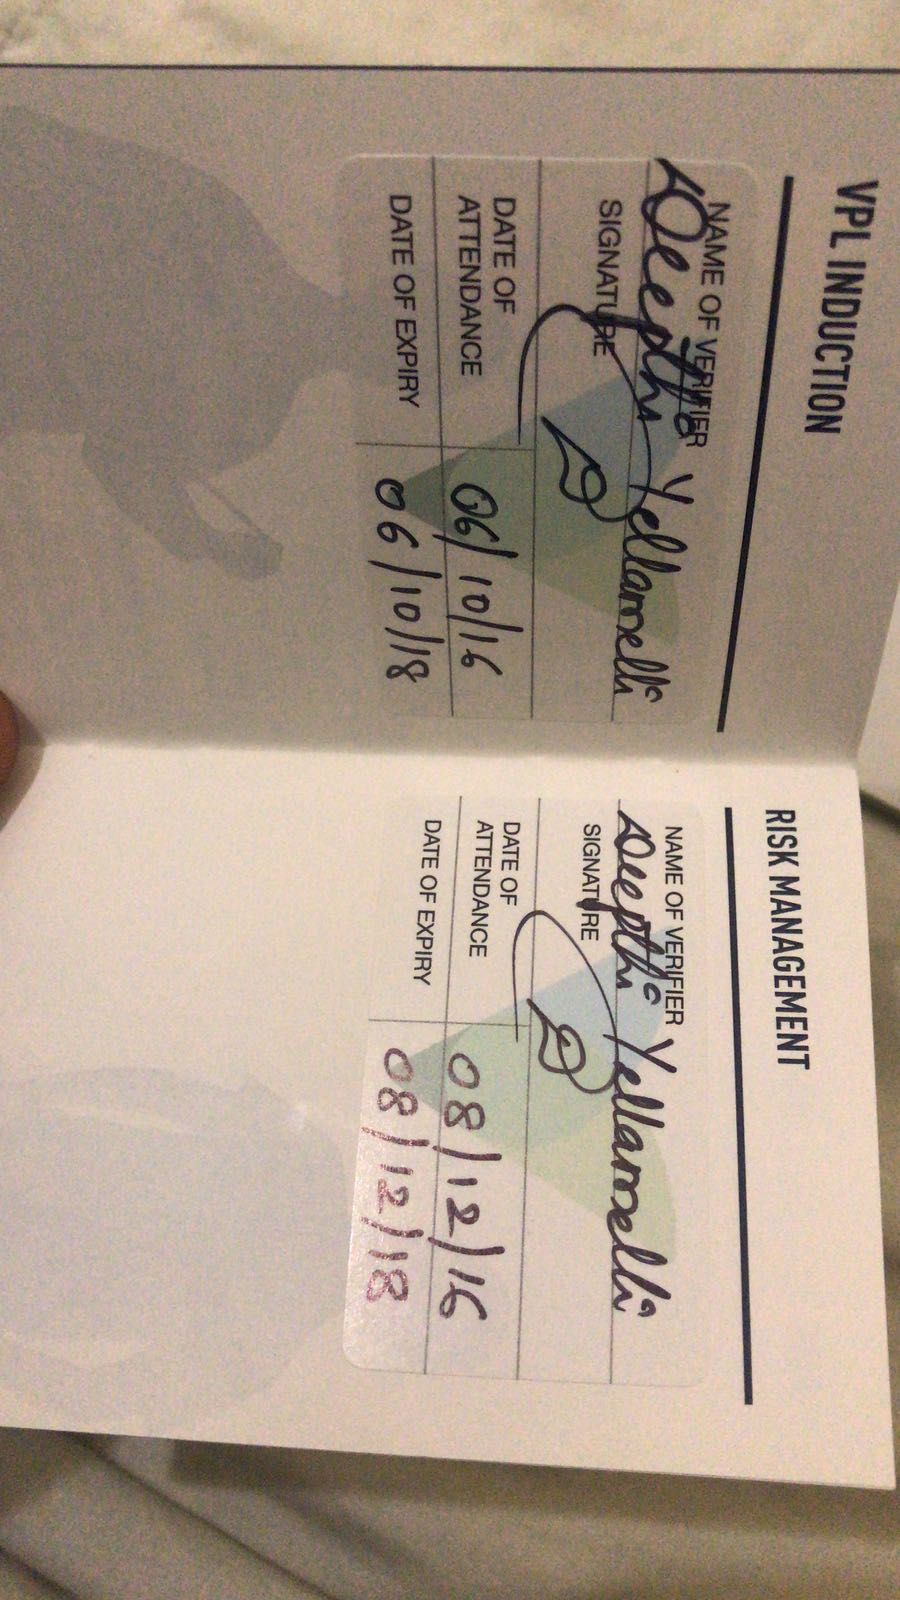 VPL INDUCTION
NAME OF VERIFIER
Deepthi Yellamelli
SIGNATURE
DATE OF
ATTENDANCE
06/10/16
DATE OF EXPIRY
06/10/18
RISK MANAGEMENT
NAME OF VERIFIER
Deepthi Yellamelli
SIGNATURE
DATE OF
ATTENDANCE
08/12/16
DATE OF EXPIRY
08/12/18